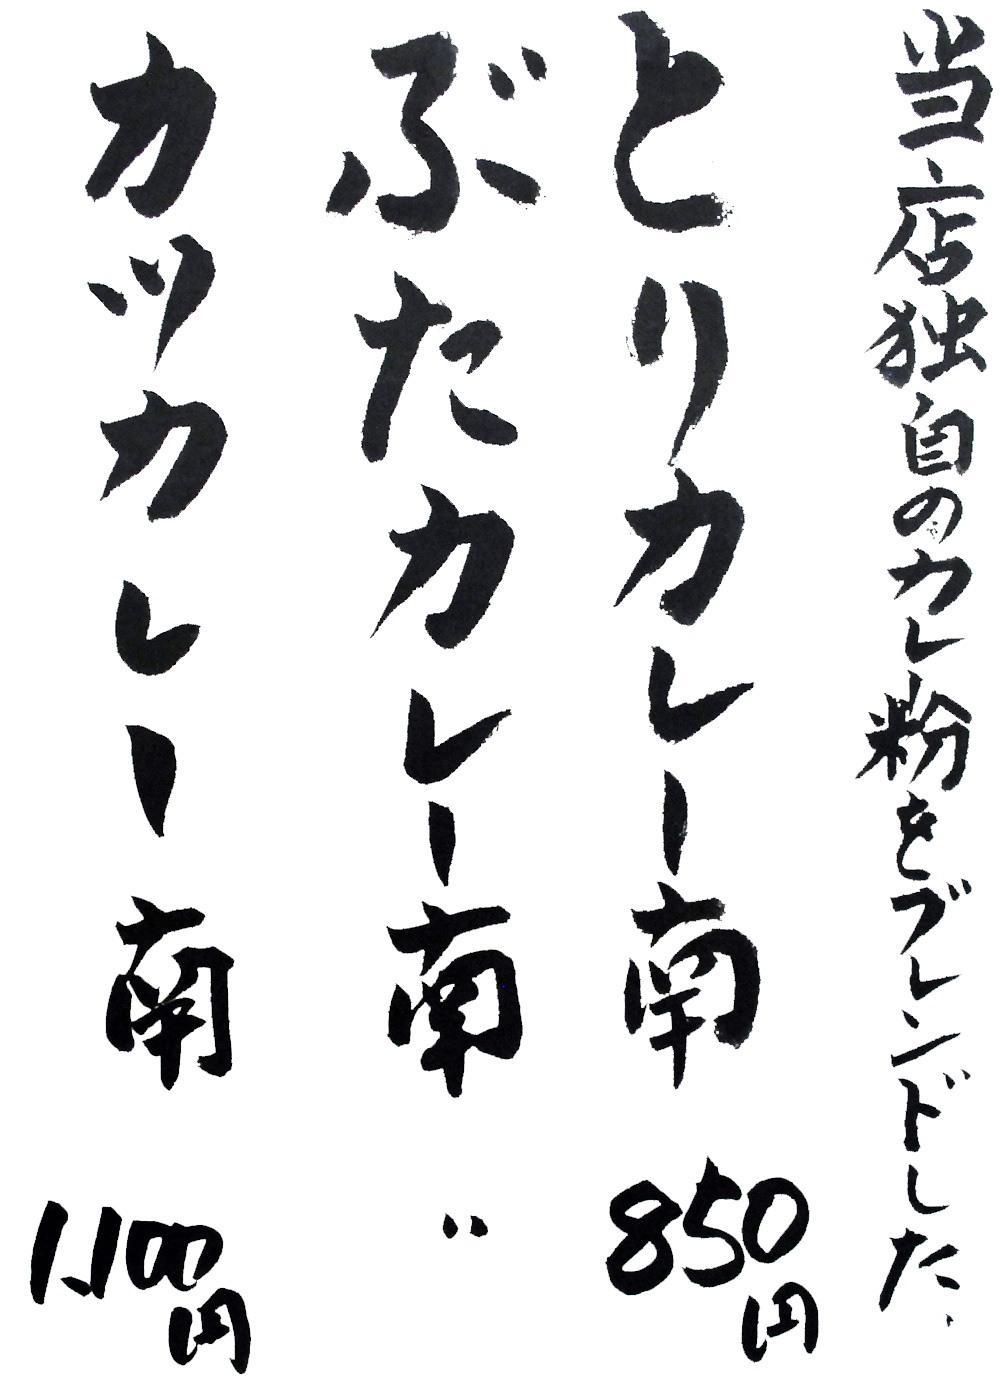 当店独自のカレ粉をブレンドした、
とりカレー南 850円
ぶたカレー南 〃
カツカレー南 1,100円